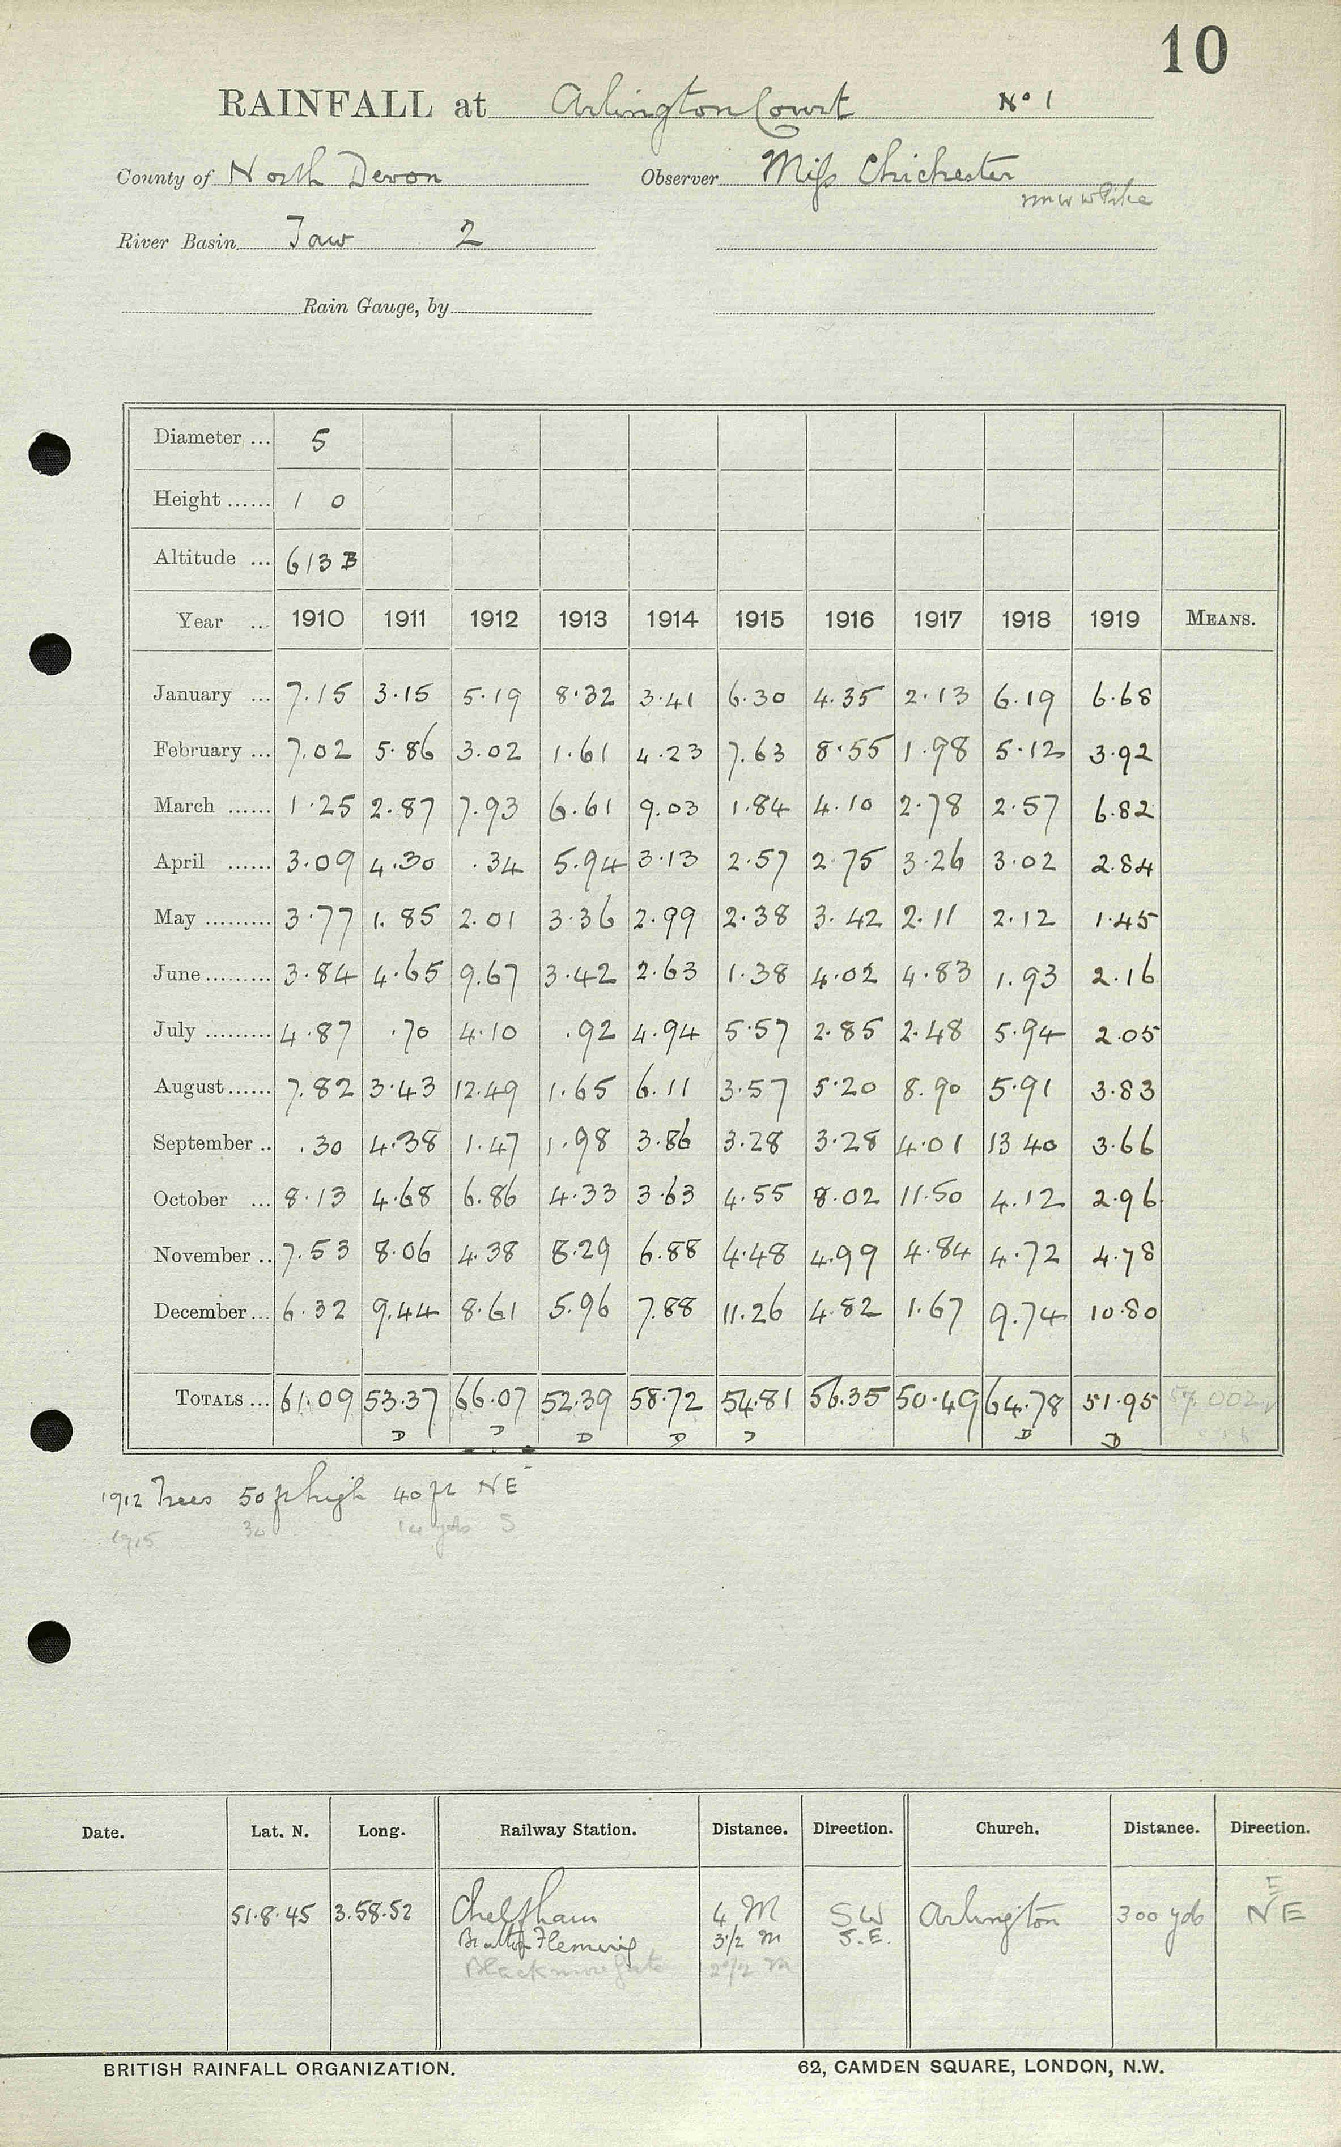 10
RAINFALL at Arlington Court No 1
County of North Devon Observer Miss Chichester
River Basin Taw 2
Rain Gauge, by
Diameter ... 5
Height ...... 1 0
Altitude ... 613 B
Year ... 1910 1911 1912 1913 1914 1915 1916 1917 1918 1919 MEANS.
January ... 7.15 3.15 5.19 8.32 3.41 6.30 4.35 2.13 6.19 6.68
February ... 7.02 5.86 3.02 1.61 4.23 7.63 8.55 1.98 5.12 3.92
March ...... 1.25 2.87 7.93 6.61 9.03 1.84 4.10 2.78 2.57 6.82
April ...... 3.09 4.30 .34 5.94 3.13 2.57 2.75 3.26 3.02 2.84
May ......... 3.77 1.85 2.01 3.36 2.99 2.38 3.42 2.11 2.12 1.45
June ......... 3.84 4.65 9.67 3.42 2.63 1.38 4.02 4.83 1.93 2.16
July ......... 4.87 .70 4.10 .92 4.94 5.57 2.85 2.48 5.94 2.05
August ...... 7.82 3.43 12.49 1.65 6.11 3.57 5.20 8.90 5.91 3.83
September .. .30 4.38 1.47 1.98 3.86 3.28 3.28 4.01 13 40 3.66
October ... 8.13 4.68 6.86 4.33 3.63 4.55 8.02 11.50 4.12 2.96
November .. 7.53 8.06 4.38 8.29 6.88 4.48 4.99 4.84 4.72 4.78
December ... 6.32 9.44 8.61 5.96 7.88 11.26 4.82 1.67 9.74 10.80
TOTALS ... 61.09 53.37 66.07 52.39 58.72 54.81 56.35 50.49 64.78 51.95 57.002
D D D D D D D
1912 Trees 50 ft high 40 ft NE
1915 30 14 yds S
Date. Lat. N. Long. Railway Station. Distance. Direction. Church. Distance. Direction.
E
51.8.45 3.58.52 Chelfham 4 M SW Arlington 300 yds NE
Bratton Fleming 3 1/2 m S.E.
Blackmoor Gate 2 1/2 m
BRITISH RAINFALL ORGANIZATION. 62, CAMDEN SQUARE, LONDON, N.W.